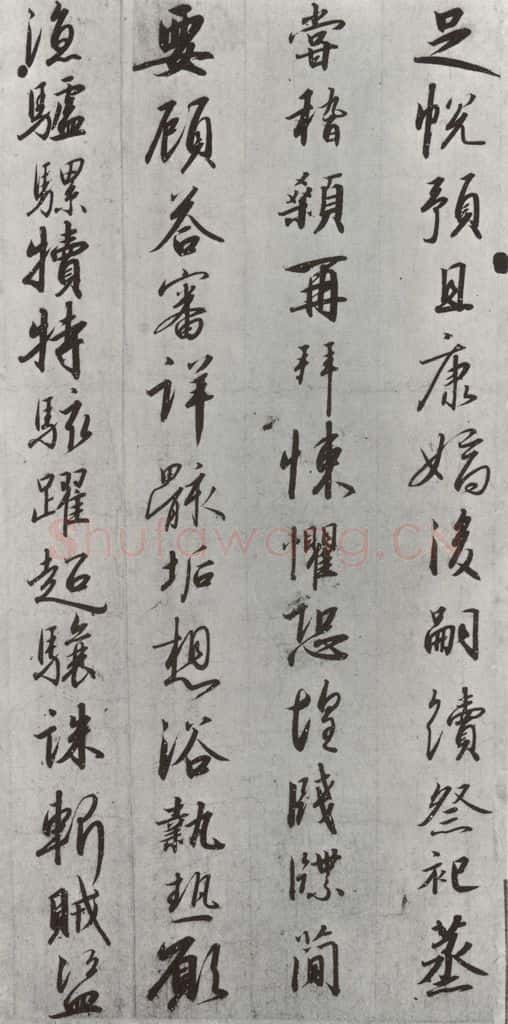 足悅預且康嫡後嗣續祭祀蒸
嘗稽顙再拜悚懼恐惶牋牒簡
要顧答審詳骸垢想浴執熱願
涼驢騾犢特駭躍超驤誅斬賊盜
Shufawang.CN